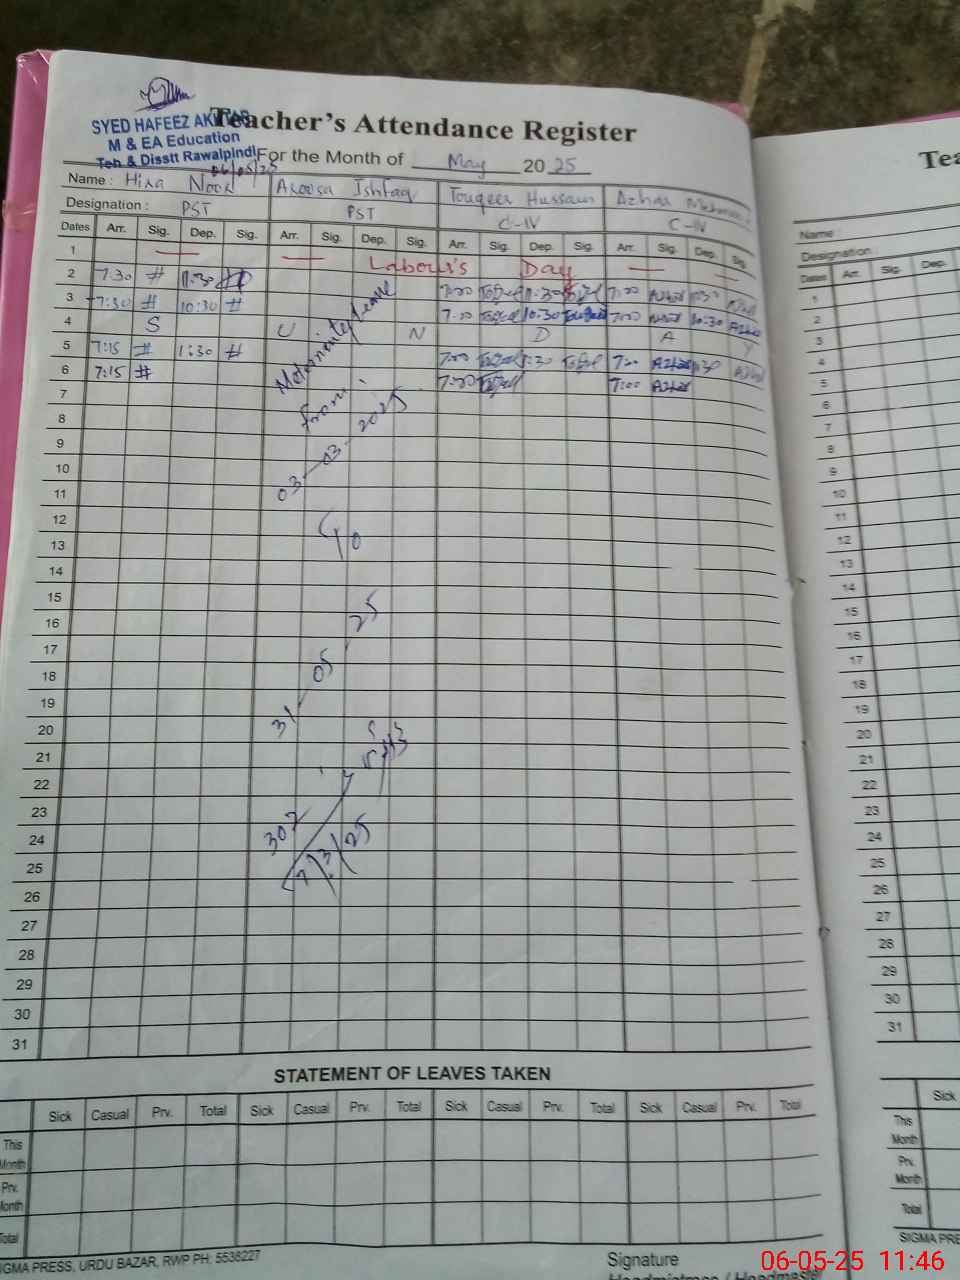 Teacher's Attendance Register
SYED HAFEEZ AKHTAR
M & EA Education
Teh & Disstt Rawalpindi
06/05/25
For the Month of May 2025
Name: Hira Noor Aroosa Ishfaq Touqeer Hussain Azhar
Designation: PST PST C-IV C-IV
Dates Arr. Sig. Dep. Sig. Arr. Sig. Dep. Sig. Arr. Sig. Dep. Sig. Arr. Sig. Dep. Sig.
1 Labour's Day
2 7:30 11:30 7:00 11:30 7:00
3 7:30 10:30 7:00 10:30 7:00 10:30
4 S U N D A Y
5 7:15 1:30 7:00 1:30 7:00 1:30
6 7:15 7:00 7:00
7
8
9
10
11
12
13
14
15
16
17
18
19
20
21
22
23
24
25
26
27
28
29
30
31
Meternnity Leave
from:
03-03-2025
To
31-05-25
302
7/3/25
STATEMENT OF LEAVES TAKEN
Sick Casual Prv. Total Sick Casual Prv. Total Sick Casual Prv. Total Sick Casual Prv. Total
This Month
Prv. Month
Total
SIGMA PRESS, URDU BAZAR, RWP PH: 5536227
Signature
Headmistress / Headmaster
Tea
Name:
Designation
Dates Arr. Sig. Dep.
1
2
3
4
5
6
7
8
9
10
11
12
13
14
15
16
17
18
19
20
21
22
23
24
25
26
27
28
29
30
31
Sick
This Month
Prv. Month
Total
SIGMA PRE
06-05-25 11:46